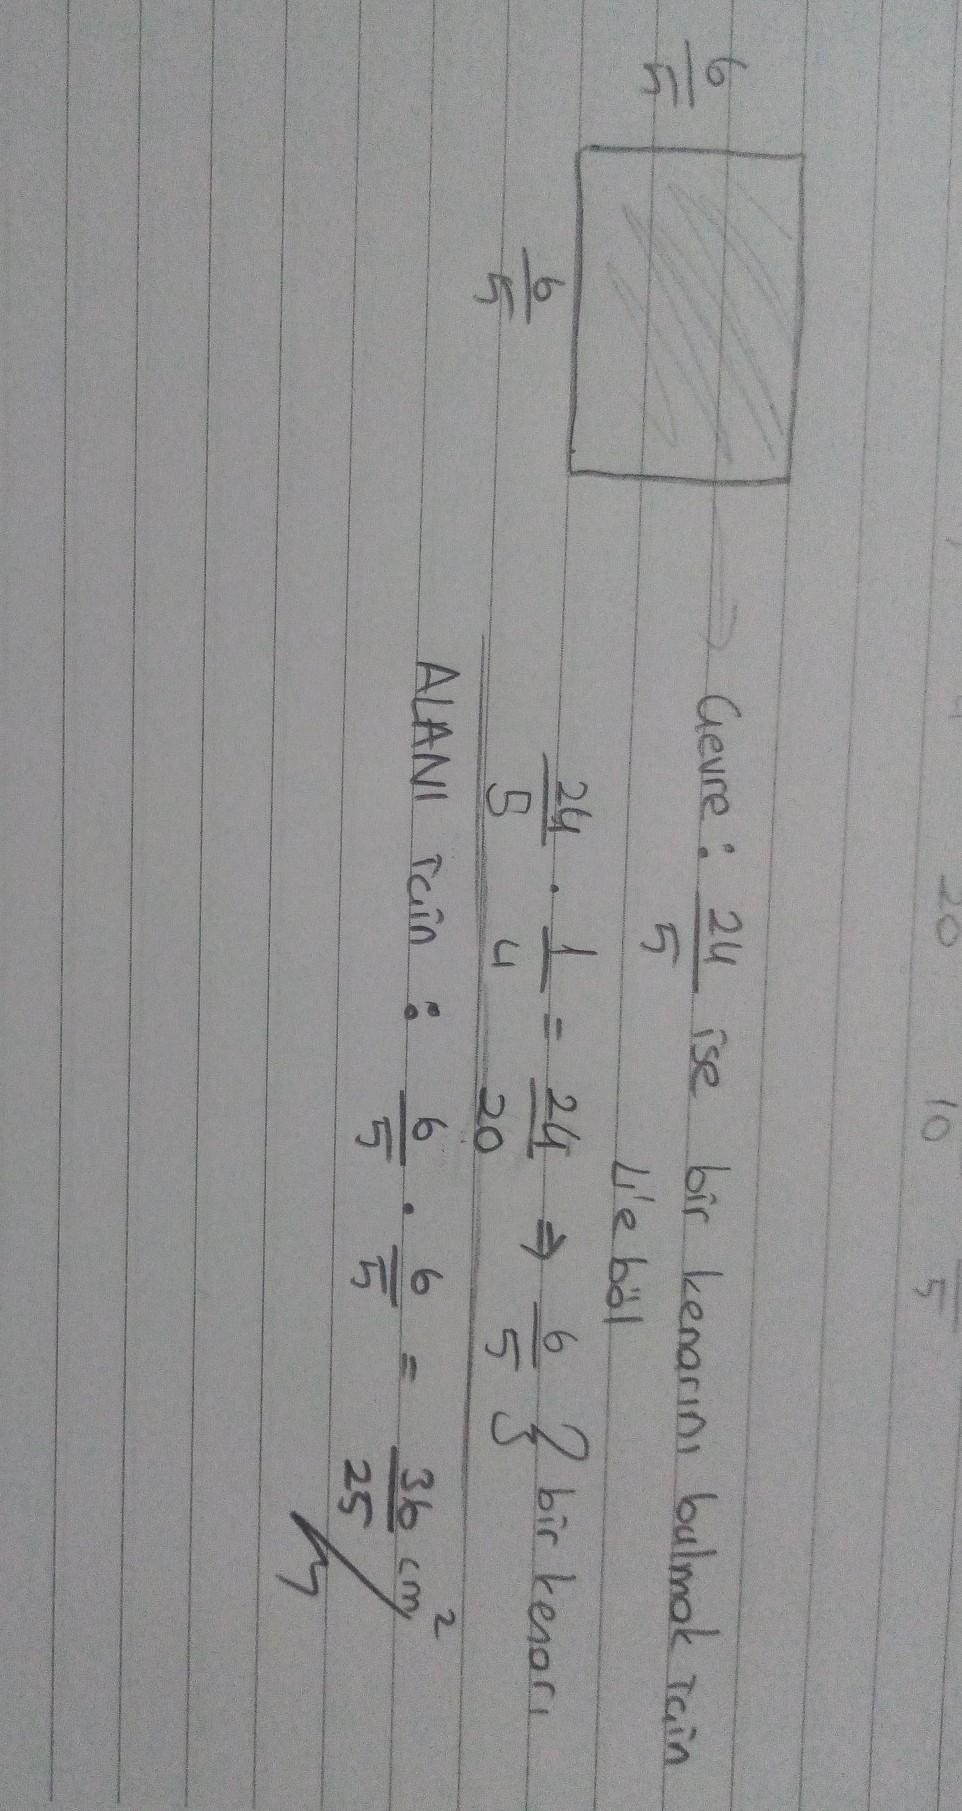 20 10 5
6/5
6/5
Çevre : 24/5 ise bir kenarını bulmak için
4'e böl
24/5 . 1/4 = 24/20 ⇒ 6/5 } bir kenarı
ALANI için : 6/5 . 6/5 = 36/25 cm²